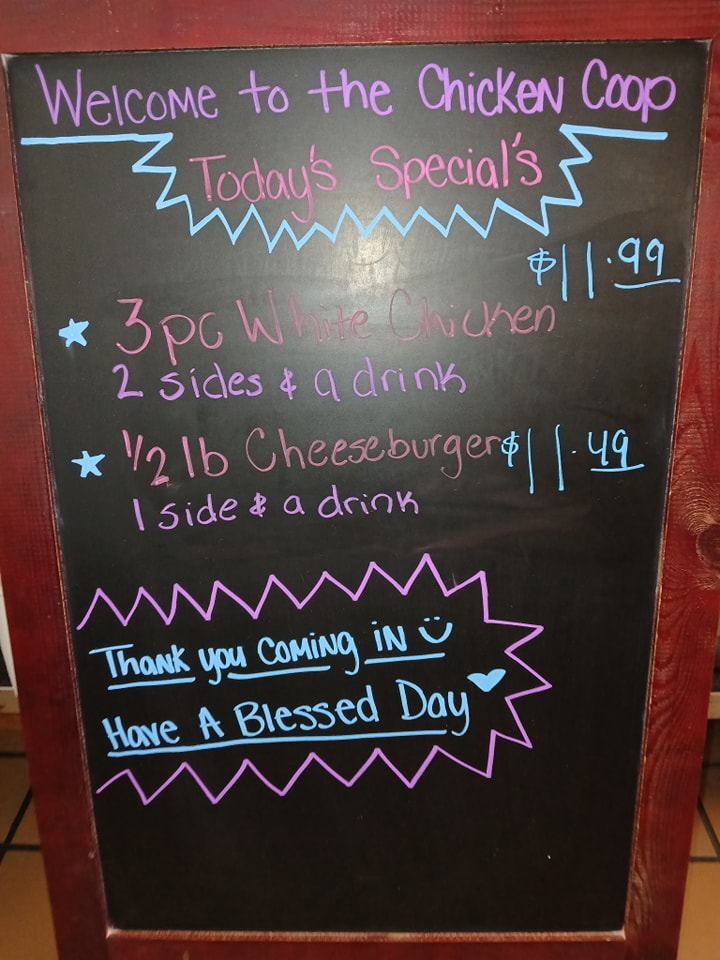 Welcome to the Chicken Coop
Today's Special's
$11.99
3pc White Chicken
2 sides & a drink
1/2 lb Cheeseburger $11.49
1 side & a drink
Thank you Coming in
Have A Blessed Day